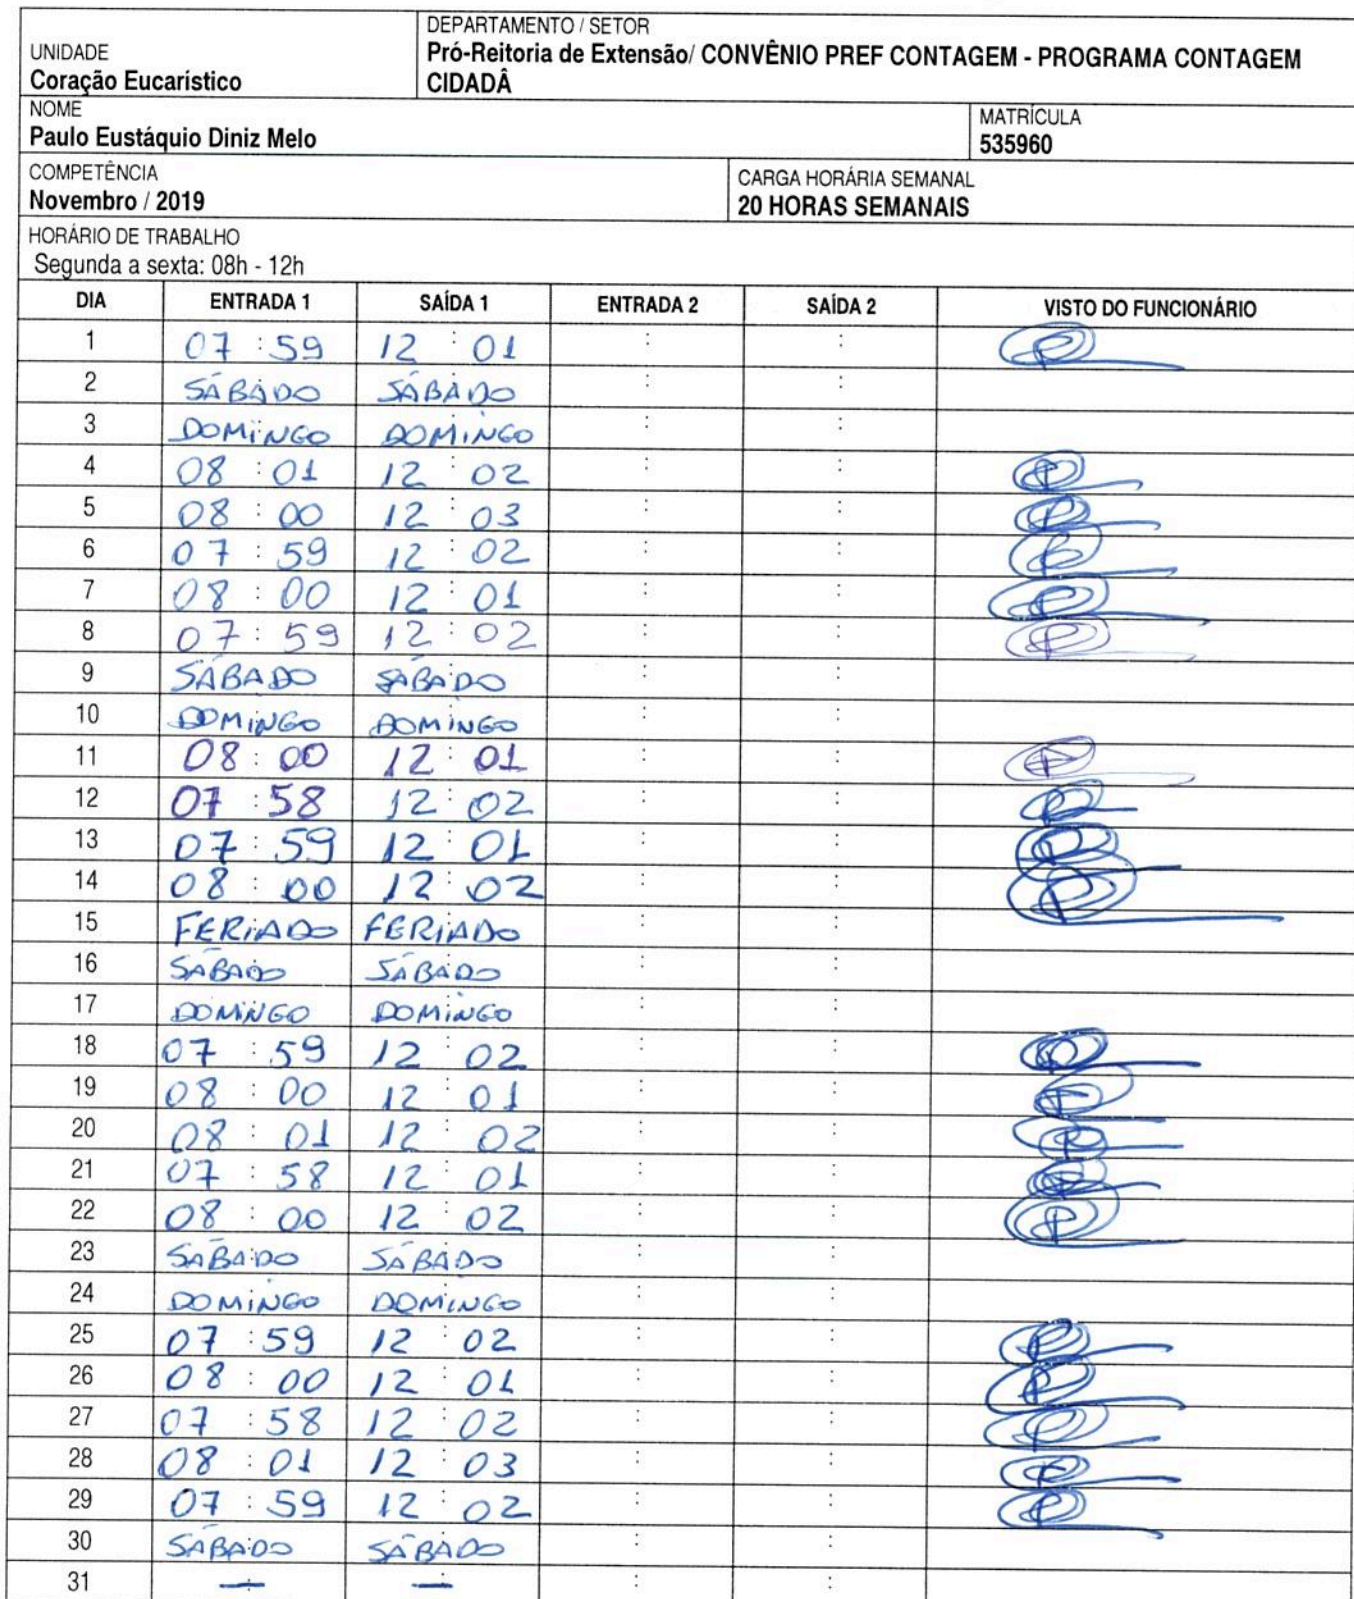 UNIDADE
Coração Eucarístico
DEPARTAMENTO / SETOR
Pró-Reitoria de Extensão/ CONVÊNIO PREF CONTAGEM - PROGRAMA CONTAGEM
CIDADÂ
NOME
Paulo Eustáquio Diniz Melo
MATRÍCULA
535960
COMPETÊNCIA
Novembro / 2019
CARGA HORÁRIA SEMANAL
20 HORAS SEMANAIS
HORÁRIO DE TRABALHO
Segunda a sexta: 08h - 12h
DIA ENTRADA 1 SAÍDA 1 ENTRADA 2 SAÍDA 2 VISTO DO FUNCIONÁRIO
1 07 : 59 12 : 01 : :
2 SÁBADO SÁBADO : :
3 DOMINGO DOMINGO : :
4 08 : 01 12 : 02 : :
5 08 : 00 12 : 03 : :
6 07 : 59 12 : 02 : :
7 08 : 00 12 : 01 : :
8 07 : 59 12 : 02 : :
9 SÁBADO SÁBADO : :
10 DOMINGO DOMINGO : :
11 08 : 00 12 : 01 : :
12 07 : 58 12 : 02 : :
13 07 : 59 12 : 01 : :
14 08 : 00 12 : 02 : :
15 FERIADO FERIADO : :
16 SÁBADO SÁBADO : :
17 DOMINGO DOMINGO : :
18 07 : 59 12 : 02 : :
19 08 : 00 12 : 01 : :
20 08 : 01 12 : 02 : :
21 07 : 58 12 : 01 : :
22 08 : 00 12 : 02 : :
23 SÁBADO SÁBADO : :
24 DOMINGO DOMINGO : :
25 07 : 59 12 : 02 : :
26 08 : 00 12 : 01 : :
27 07 : 58 12 : 02 : :
28 08 : 01 12 : 03 : :
29 07 : 59 12 : 02 : :
30 SÁBADO SÁBADO : :
31 — — : :